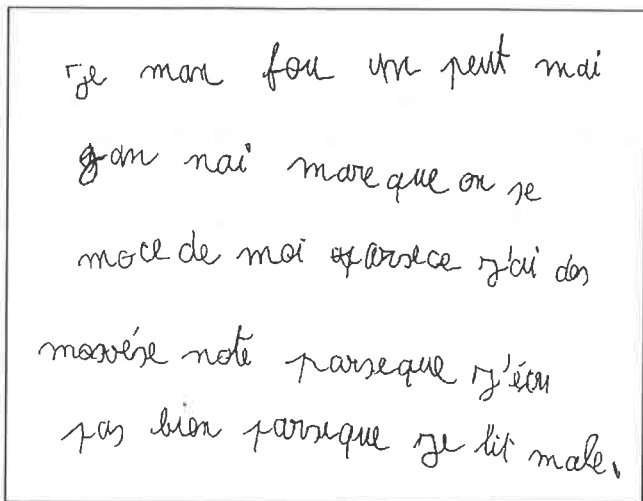 je man fou un peut mai
gan nai mare que on se
moce de moi parsece j'ai des
mauvése note parseque j'écri
pas bien parseque je lit male.